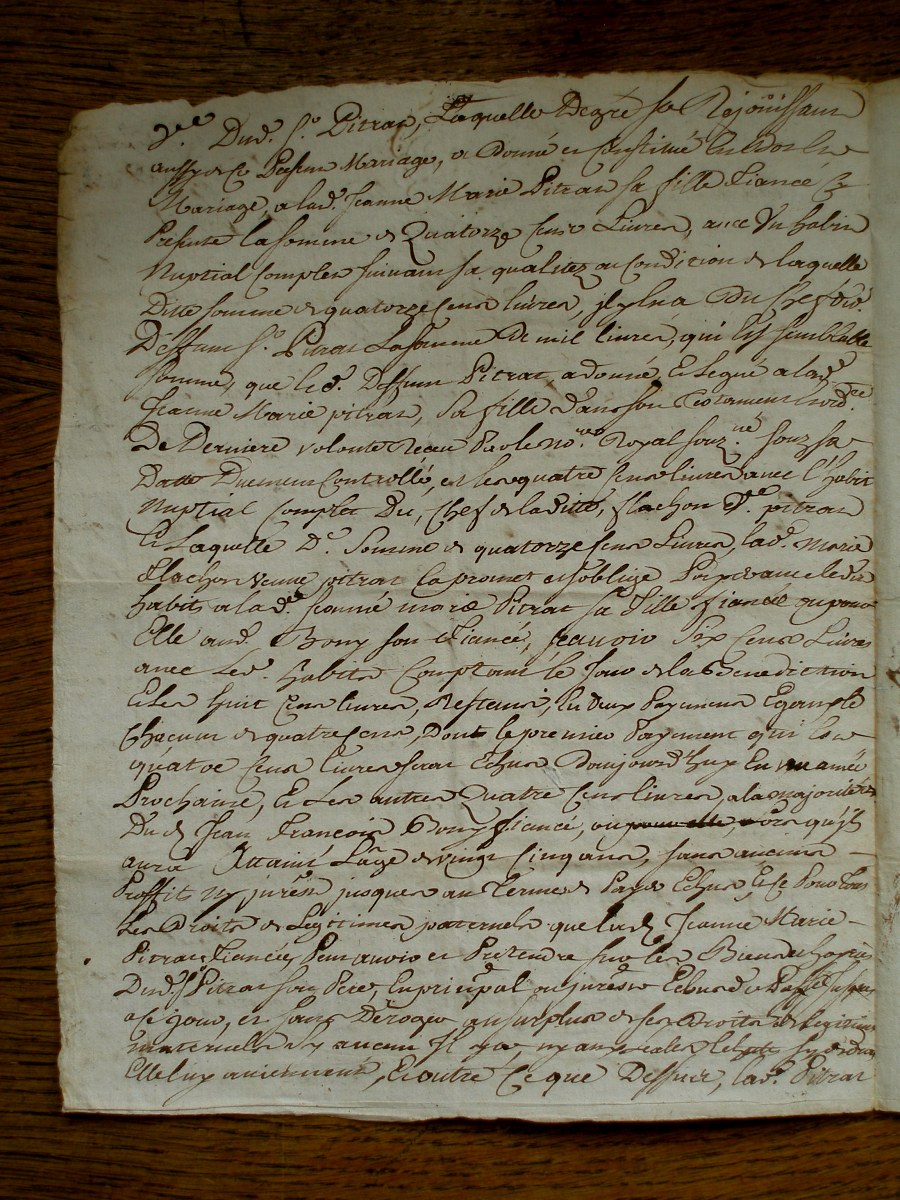 Dud. Sr. Pitrat, Laquelle De gré se Rejoüissant
aussy de Ce Présent Mariage, a Donné et Constitué En Dot de
Mariage, a lad. Jeanne Marie Pitrat sa fille fiancée Cy
Présente la somme de Quatorze Cents Livres, avec Un habit
Nuptial Complet suivant sa qualitez ou Condition de laquelle
Ditte somme de quatorze Cents livres, il y En a Du Chef dud.
Deffunt Sr. Pitrat La somme De mil livres, qui Est semblable
somme, que led. Deffunt Pitrat a donné, Et Legué a lad.
Jeanne Marie pitrat, sa fille Dans son Testament
De Derniere volonté Receu Par le Nore. Royal souz.né souz sa
Datte Duement Controllé, et les quatre Cents livres avec l'habit
Nuptial Complet Du Chef de laditte flachon Ve. pitrat
Et Laquelle De. Somme de quatorze Cents Livres, lad. Marie
flachon veuve pitrat la promet et s'oblige Payer avec lesd.
habits a lad. Jeanne marie Pitrat sa fille fiancée ou pour
Elle aud. Bony son fiancé, sçavoir Six Cents Livres
avec Led. habits Comptant le Jour de la Benediction
Et Les huit Cents livres, Restant, En deux Payements Egeaux
Chacun de quatre Cents, Dont le premier Payement qui Est
quatre Cents livres sera Echus Daujourd'huy En un année
Prochaine, Et Les autres Quatre Cents livres, a la majorité
Dud. Jean François Bony fiancé, ou lors qu'il
aura Attaint L'âge de vingt Cinq ans, sans aucuns
Proffits ny jnterêts jusques au Terme de Paye Echus, Et Ce Pour Tous
Les Droits de Legitimes paternels que lad. Jeanne Marie
Pitrat fiancée, Peut avoir et Prétendre sur les Biens
Dud. Sr. Pitrat son Pere, En principal ou jnterêts Echus
a Ce jour, et sans Deroger au surplus de ses Droits de Legitime
maternelle
Et outre Ce que Dessus, lad. Pitrat